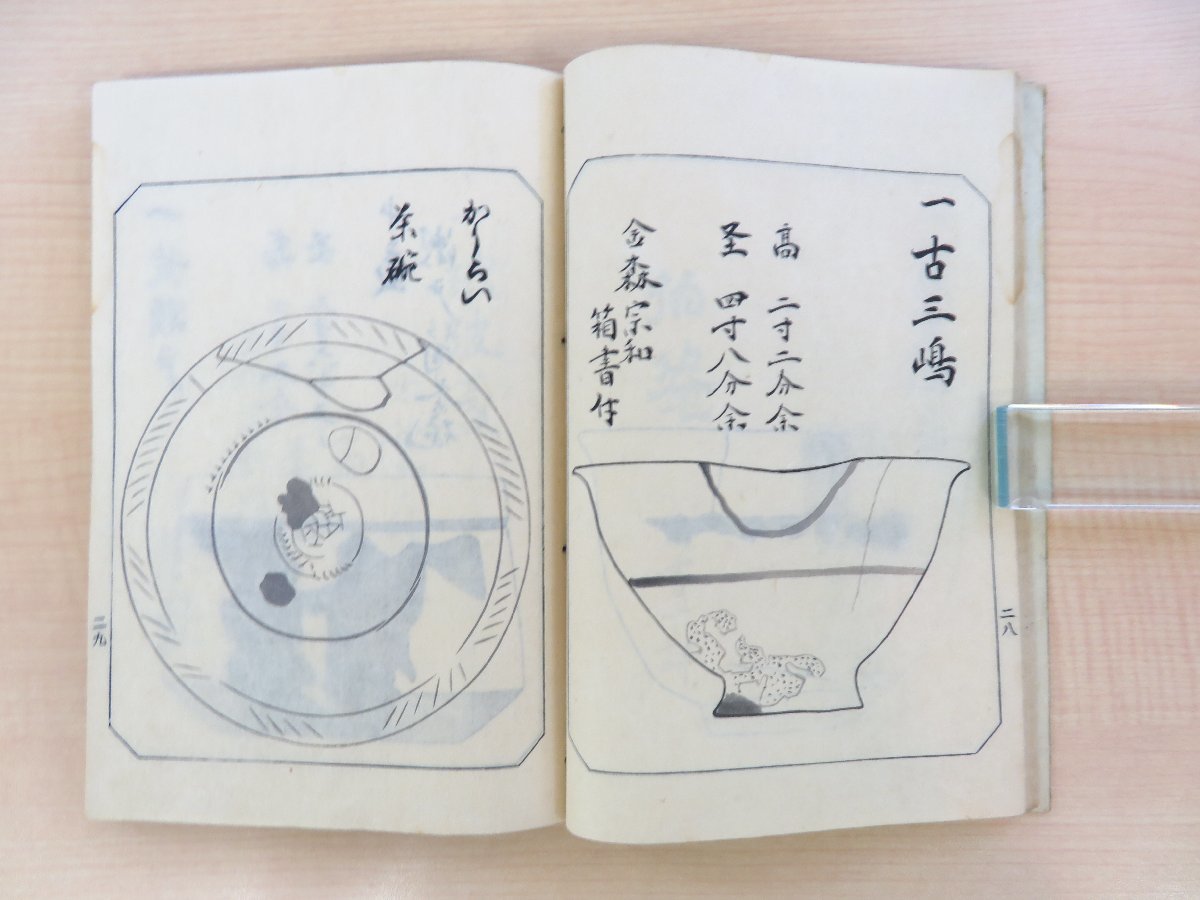 一古三嶋
高 二寸二分余
径 四寸八分余
金森宗和
箱書付
二八
かうらい
茶碗
二九